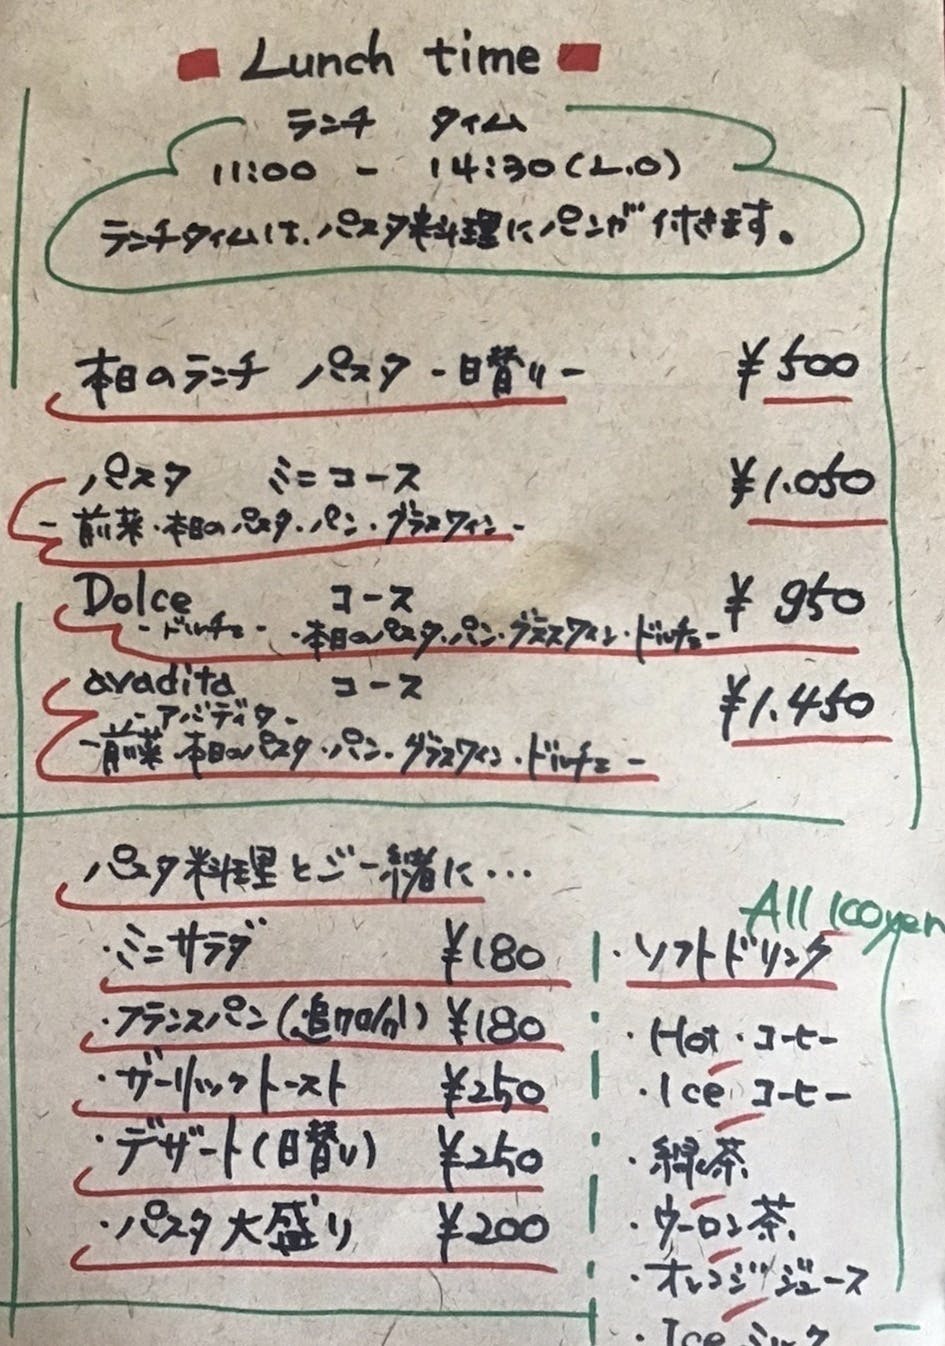 Lunch time
ランチ タイム
11:00 - 14:30(L.O)
ランチタイムは、パスタ料理にパンが付きます。
本日のランチ パスタ -日替り- ¥500
パスタ ミニコース ¥1.050
-前菜・本日のパスタ・パン・グラスワイン-
Dolce コース ¥950
-ドルチェ- ・本日のパスタ・パン・グラスワイン・ドルチェ-
avadita コース ¥1.450
-アバディタ-
-前菜・本日のパスタ・パン・グラスワイン・ドルチェ-
パスタ料理とご一緒に...
・ミニサラダ ¥180
・フランスパン(追加) ¥180
・ガーリックトースト ¥250
・デザート(日替り) ¥250
・パスタ大盛り ¥200
All 100yen
・ソフトドリンク
・Hot・コーヒー
・Ice コーヒー
・緑茶
・ウーロン茶
・オレンジジュース
・Ice ミルク